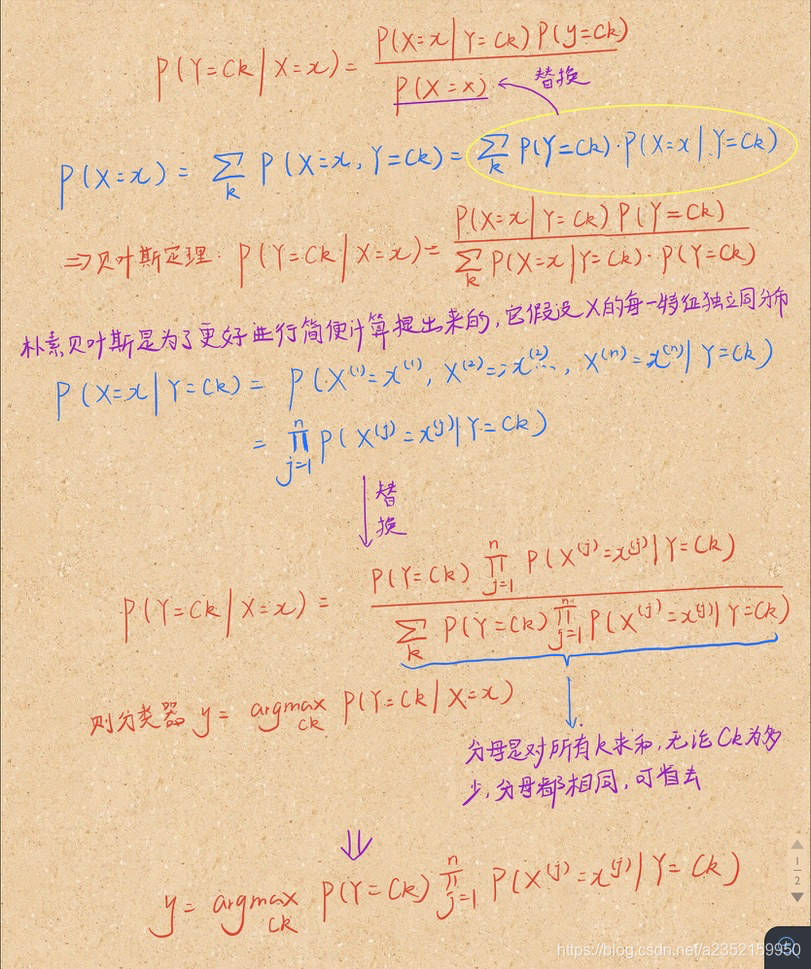 P(Y=Ck|X=x)= P(X=x|Y=Ck)P(y=Ck)
P(X=x)
替换
P(X=x)= ∑k P(X=x,Y=Ck)= ∑k P(Y=Ck)·P(X=x|Y=Ck)
⇒贝叶斯定理: P(Y=Ck|X=x)= P(X=x|Y=Ck)P(Y=Ck)
∑k P(X=x|Y=Ck)·P(Y=Ck)
朴素贝叶斯是为了更好进行简便计算提出来的,它假设X的每一特征独立同分布
P(X=x|Y=Ck)= P(X⁽¹⁾=x⁽¹⁾, X⁽²⁾=;x⁽²⁾..., X⁽ⁿ⁾=x⁽ⁿ⁾|Y=Ck)
= ∏ⁿj=1 P(X⁽ʲ⁾=x⁽ʲ⁾|Y=Ck)
替
换
P(Y=Ck|X=x)= P(Y=Ck) ∏ⁿj=1 P(X⁽ʲ⁾=x⁽ʲ⁾|Y=Ck)
∑k P(Y=Ck) ∏ⁿj=1 P(X⁽ʲ⁾=x⁽ʲ⁾|Y=Ck)
则分类器 y= argmax Ck P(Y=Ck|X=x)
分母是对所有k求和,无论Ck为多
少,分母都相同,可省去
⇓
y= argmax Ck P(Y=Ck) ∏ⁿj=1 P(X⁽ʲ⁾=x⁽ʲ⁾|Y=Ck)
1
2
https://blog.csdn.net/a2352159950